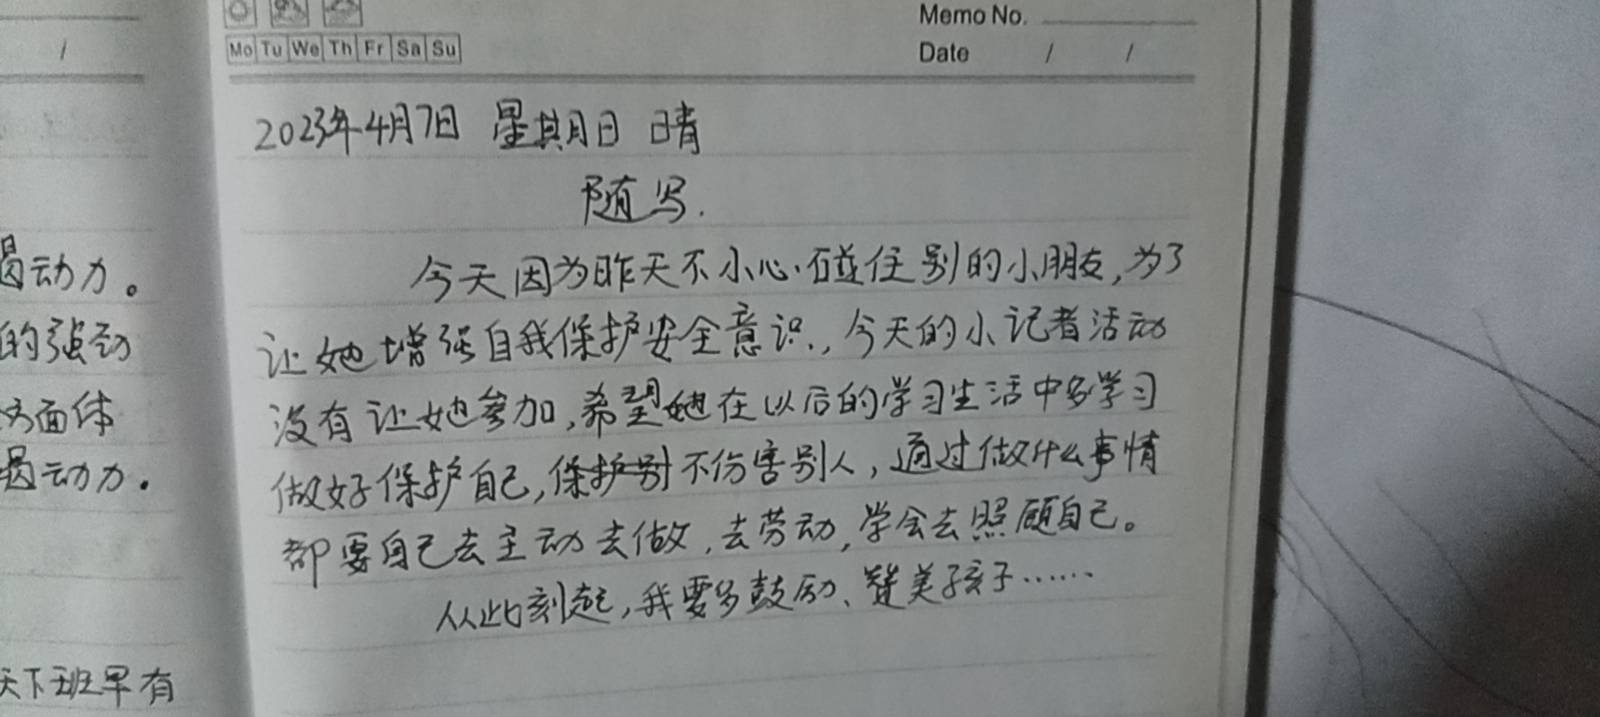 Memo No.
Mo Tu We Th Fr Sa Su
Date / /
/
2023年4月7日 星期日 晴
随写.
今天因为昨天不小心碰住别的小朋友,为了
让她增强自我保护安全意识,今天的小记者活动
没有让她参加,希望她在以后的学习生活中多学习
做好保护自己,保护别不伤害别人,通过做什么事情
都要自己去主动去做,去劳动,学会去照顾自己。
从此刻起,我要多鼓励、赞美孩子……
动力。
的强动
方面体
动力.
天下班早有